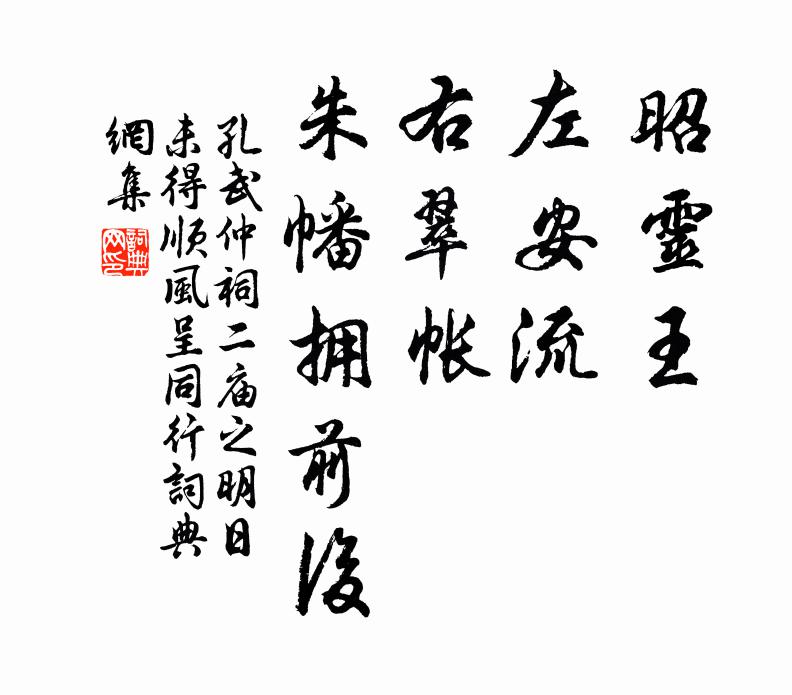 昭靈王
左安流
右翠帳
朱幡拥前後
孔武仲祠二庙之明日
未得順風呈同行詞典
網集
詞典网印